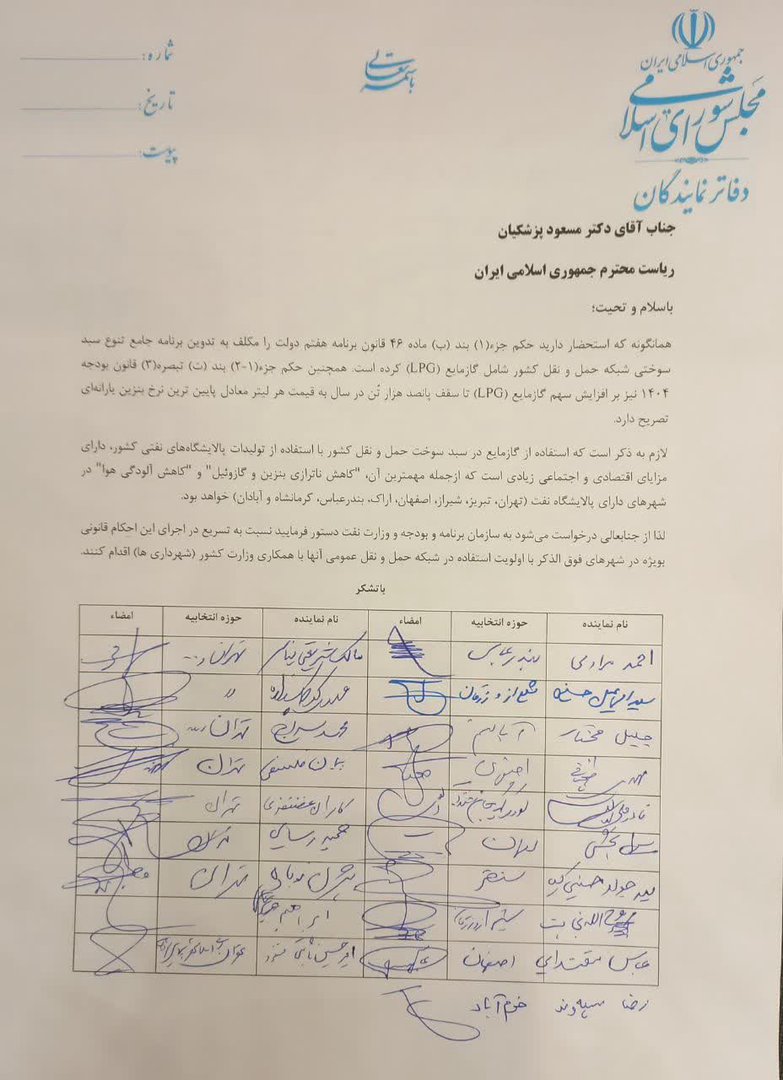 جمهوری اسلامی ایران
مجلس شورای اسلامی
دفاتر نمایندگان
باسمه تعالی
شماره:
تاریخ:
پیوست:
جناب آقای دکتر مسعود پزشکیان
ریاست محترم جمهوری اسلامی ایران
باسلام و تحیت؛
همانگونه که استحضار دارید حکم جزء(۱) بند (ب) ماده ۴۶ قانون برنامه هفتم دولت را مکلف به تدوین برنامه جامع تنوع سبد
سوختی شبکه حمل و نقل کشور شامل گازمایع (LPG) کرده است. همچنین حکم جزء(۱-۲) بند (ت) تبصره(۳) قانون بودجه
۱۴۰۴ نیز بر افزایش سهم گازمایع (LPG) تا سقف پانصد هزار تُن در سال به قیمت هر لیتر معادل پایین ترین نرخ بنزین یارانه‌ای
تصریح دارد.
لازم به ذکر است که استفاده از گازمایع در سبد سوخت حمل و نقل کشور با استفاده از تولیدات پالایشگاه‌های نفتی کشور، دارای
مزایای اقتصادی و اجتماعی زیادی است که ازجمله مهمترین آن، "کاهش ناترازی بنزین و گازوئیل" و "کاهش آلودگی هوا" در
شهرهای دارای پالایشگاه نفت (تهران، تبریز، شیراز، اصفهان، اراک، بندرعباس، کرمانشاه و آبادان) خواهد بود.
لذا از جنابعالی درخواست می‌شود به سازمان برنامه و بودجه و وزارت نفت دستور فرمایید نسبت به تسریع در اجرای این احکام قانونی
بویژه در شهرهای فوق الذکر با اولویت استفاده در شبکه حمل و نقل عمومی آنها با همکاری وزارت کشور (شهرداری ها) اقدام کنند.
باتشکر
نام نماینده حوزه انتخابیه امضاء نام نماینده حوزه انتخابیه امضاء
احمد مرادی بندرعباس مالک شریعتی نیاسر تهران و...
سید اسماعیل حسینی
جلیل مختار آبادان محمد سیراج تهران
تهران
کامران غضنفری تهران
تهران حمید رسایی تهران
سید جواد حسینی کیا سنقر تهران
روح الله نجابت شیراز
عباس مقتدایی اصفهان امیرحسین بانکی
رضا سپهوند خرم آباد